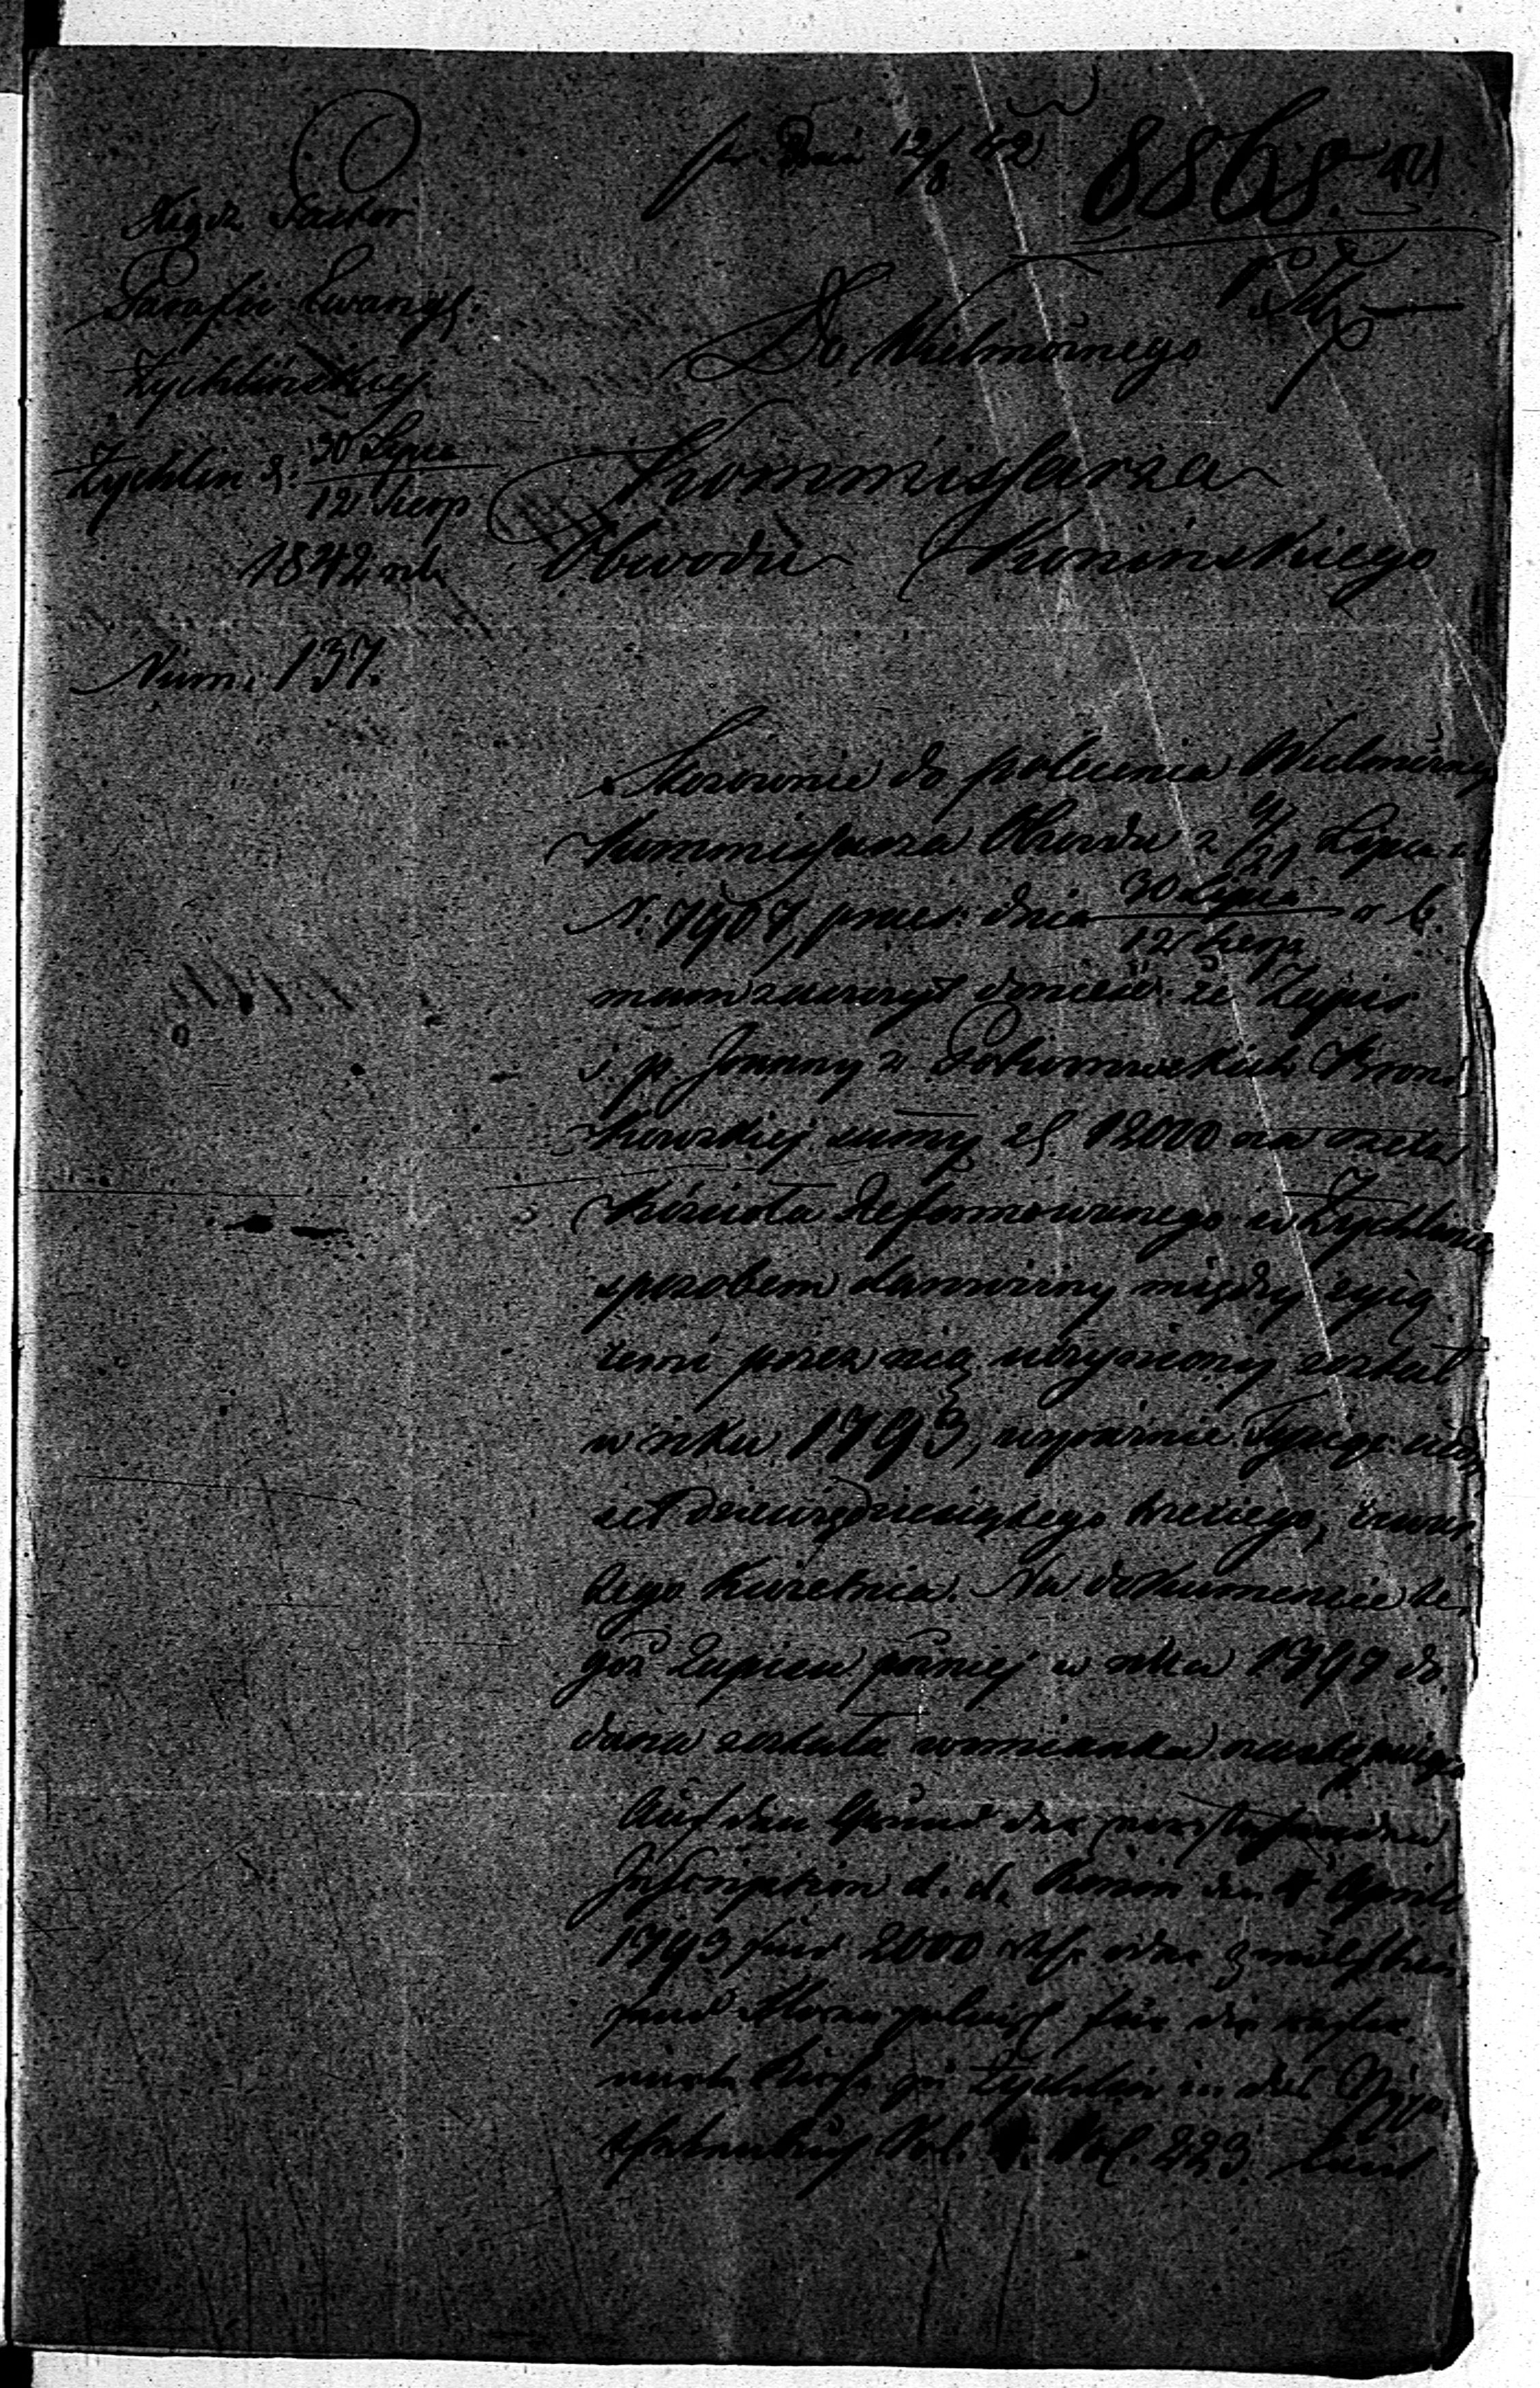 Xiądz Pastor
Parafii Ewang.
Żychlińskiej
Żychlin d. 30 Lipca / 12 Sierp
1842 rku
Num. 137.
pr. Dnia 12/8 42
8868
Do Wielmożnego
Kommissarza
Obwodu Konińskiego
Stosownie do polecenia Wielmożnego
Kommissarza Obwodu z 9/21 Lipca
N. 7907, dnia 30 Lipca / 12 Sierp r b.
mam zaszczyt donieść że Zapis
ś. p. Joanny z Bron
kowskiej sumy zł 12000 na rzecz
Kościoła Reformowanego w Żychlinie
sposobem darowizny między żyją
cemi przez nią uczyniony został
w roku 1793, wyraźnie Tysiąc siedm
set dziewięćdziesiątego trzeciego, czwar
tego Kwietnia. Na dokumencie te
goż Zapisu później w roku 1797 do
dana została wzmianka następująca
Auf den Grund der vorstehenden
Inscription d. d. Konin den 4 April
1793 sind 2000 rthr oder zwölf tau
send polnisch für die refor
mirte Kirche zu Żychlin in das Hypo
thekenbuch Vol. Fol. 223. laut